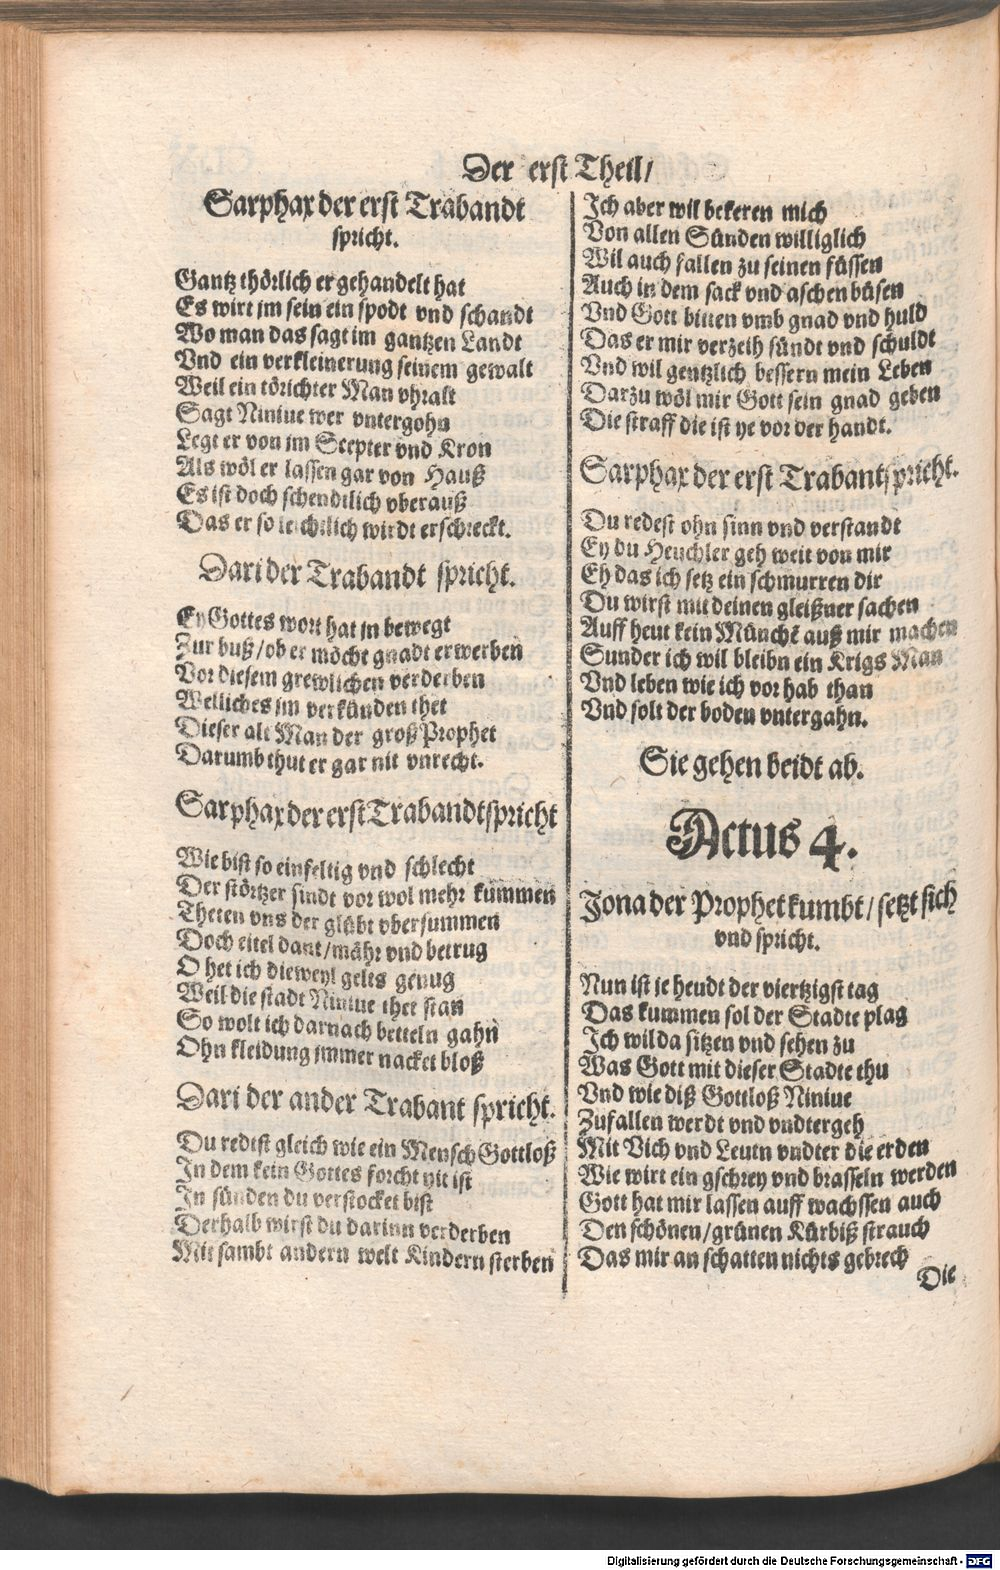 Der erst Theil/
Sarphax der erst Trabandt
spricht.
Gantz thörlich er gehandelt hat
Es wirt jm sein ein spodt vnd schandt
Wo man das sagt im gantzen Landt
Vnd ein verkleinerung seinem gewalt
Weil ein törichter Man vhralt
Sagt Niniue wer vntergohn
Legt er von jm Scepter vnd Kron
Als wöl er lassen gar von Hauß
Es ist doch schendtlich vberauß
Das er so leichtlich wirdt erschreckt.
Dari der Trabandt spricht.
Ey Gottes wort hat jn bewegt
Zur buß/ob er möcht gnadt erwerben
Vor diesem grewlichen verderben
Welliches jm verkünden thet
Dieser alt Man der groß Prophet
Darumb thut er gar nit vnrecht.
Sarphax der erst Trabandt spricht
Wie bist so einfeltig vnd schlecht
Der störtzer sindt vor wol mehr kummen
Theten vns der glübt vbersummen
Doch eitel dant/mähr vnd betrug
O het ich dieweyl gelts genug
Weil die stadt Niniue thet stan
So wolt ich darnach betteln gahn
Ohn kleidung jmmer nacket bloß
Dari der ander Trabant spricht.
Du redist gleich wie ein Mensch Gottloß
In dem kein Gottes forcht nit ist
In sünden du verstocket bist
Derhalb wirst du darinn verderben
Mit sambt andern welt Kindern sterben
Ich aber wil bekeren mich
Von allen Sünden williglich
Wil auch fallen zu seinen füssen
Auch in dem sack vnd aschen büsen
Vnd Gott bitten vmb gnad vnd huld
Das er mir verzeih sündt vnd schuldt
Vnd wil gentzlich bessern mein Leben
Darzu wöl mir Gott sein gnad geben
Die straff die ist ye vor der handt.
Sarphax der erst Trabant spricht.
Du redest ohn sinn vnd verstandt
Ey du Heuchler geh weit von mir
Eh das ich setz ein schmurren dir
Du wirst mit deinen gleißner sachen
Auff heut kein Münchẽ auß mir machen
Sunder ich wil bleibn ein Krigs Man
Vnd leben wie ich vor hab than
Vnd solt der boden vntergahn.
Sie gehen beidt ab.
Actus 4.
Jona der Prophet kumbt/setzt sich
vnd spricht.
Nun ist je heudt der viertzigst tag
Das kummen sol der Stadte plag
Ich wil da sitzen vnd sehen zu
Was Gott mit dieser Stadte thu
Vnd wie diß Gottloß Niniue
Zufallen werdt vnd vndtergeh
Mit Vich vnd Leutn vndter die erden
Wie wirt ein gschrey vnd brasseln werden
Gott hat mir lassen auff wachssen auch
Den schönen/grünen Kürbiß strauch
Das mir an schatten nichts gebrech
Die
Digitalisierung gefördert durch die Deutsche Forschungsgemeinschaft - DFG